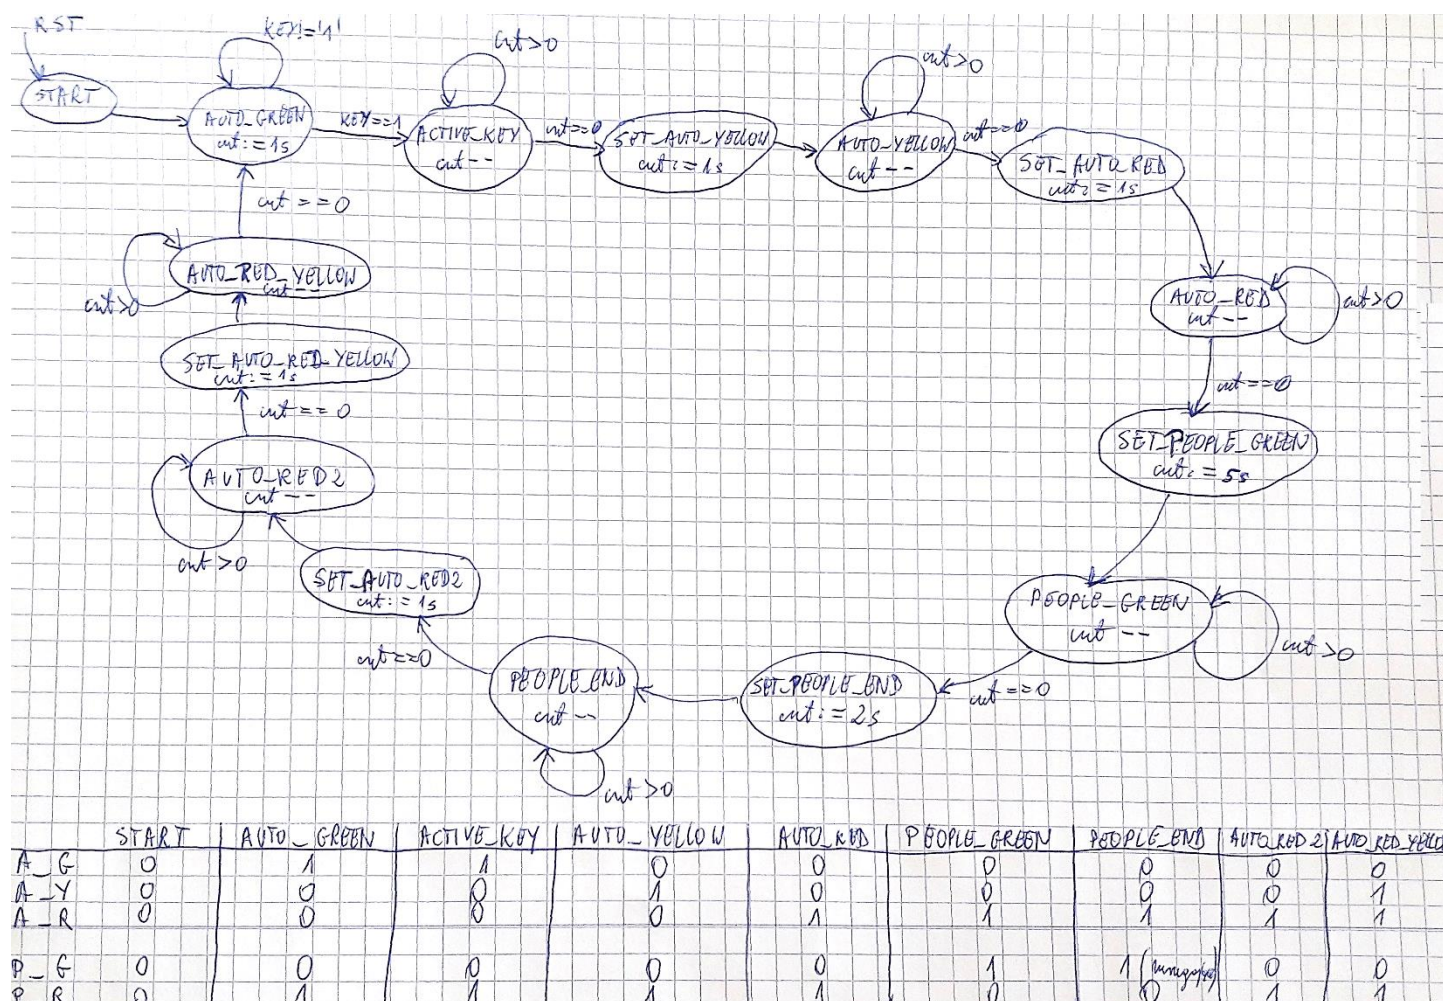 RST
START
KEY!='1'
AUTO_GREEN
cnt:=1s
KEY==1
cnt>0
ACTIVE_KEY
cnt--
cnt==0
SET_AUTO_YELLOW
cnt:=1s
cnt>0
AUTO_YELLOW
cnt--
cnt==0
SET_AUTO_RED
cnt:=1s
AUTO_RED
cnt--
cnt>0
cnt==0
SET_PEOPLE_GREEN
cnt:=5s
PEOPLE_GREEN
cnt--
cnt>0
cnt==0
SET_PEOPLE_END
cnt:=2s
PEOPLE_END
cnt--
cnt>0
cnt==0
SET_AUTO_RED2
cnt:=1s
AUTO_RED2
cnt--
cnt>0
cnt==0
SET_AUTO_RED_YELLOW
cnt:=1s
AUTO_RED_YELLOW
cnt--
cnt>0
cnt==0
START AUTO_GREEN ACTIVE_KEY AUTO_YELLOW AUTO_RED PEOPLE_GREEN PEOPLE_END AUTO_RED2 AUTO_RED_YELLO
A_G 0 1 1 0 0 0 0 0 0
A_Y 0 0 0 1 0 0 0 0 1
A_R 0 0 0 0 1 1 1 1 1
P_G 0 0 0 0 0 1 1 0 0
P_R 0 1 1 1 1 0 0 1 1